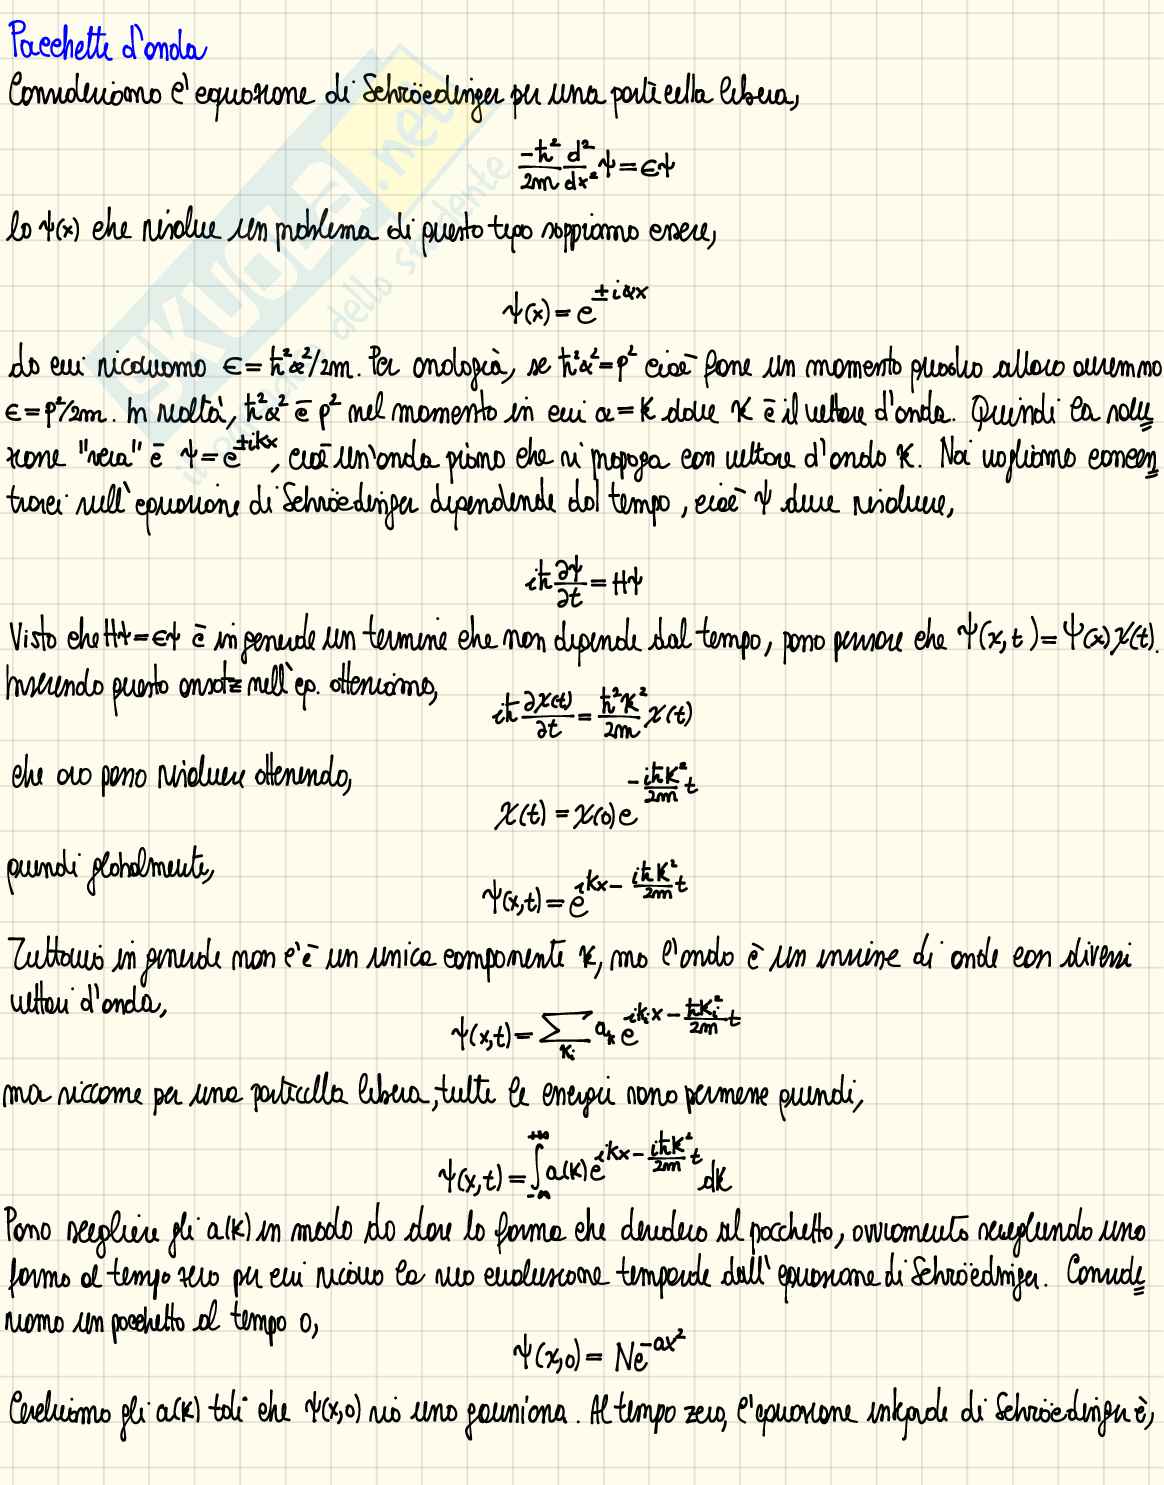 Pacchetti d'onda
Consideriamo l'equazione di Schröedinger per una particella libera,
-ħ²/2m d²/dx² ψ = εψ
la ψ(x) che risolve un problema di questo tipo sappiamo essere,
ψ(x) = e^{±iαx}
da cui ricaviamo ε = ħ²α²/2m. Per analogia, se ħ²α² = p² cioè fosse un momento quadro allora avremmo
ε = p²/2m. In realtà, ħ²α² è p² nel momento in cui α = K dove K è il vettore d'onda. Quindi la solu
zione "vera" è ψ = e^{±ikx}, cioè un'onda piana che si propaga con vettore d'onda K. Noi vogliamo concen
trarci sull'equazione di Schröedinger dipendende dal tempo, cioè ψ deve risolvere,
iħ ∂ψ/∂t = Hψ
Visto che Hψ = εψ è in generale un termine che non dipende dal tempo, posso pensare che ψ(x,t) = ψ(x)χ(t).
Inserendo questo ansatz nell'eq. otteniamo,
iħ ∂χ(t)/∂t = ħ²K²/2m χ(t)
che ora posso risolvere ottenendo,
χ(t) = χ(0) e^{-iħK²/2m t}
quindi globalmente,
ψ(x,t) = e^{ikx - iħK²/2m t}
Tuttavia in generale non c'è un unica componente K, ma l'onda è un insieme di onde con diversi
vettori d'onda,
ψ(x,t) = ∑_{Ki} a_k e^{ik_i x - ħK_i²/2m t}
ma siccome per una particella libera, tutte le energie sono permesse quindi,
ψ(x,t) = ∫_{-∞}^{+∞} a(K) e^{ikx - iħK²/2m t} dK
Posso scegliere gli a(K) in modo da dare la forma che desidero al pacchetto, ovviamente scegliendo una
forma al tempo zero per cui ricavo la sua evoluzione temporale dall'equazione di Schröedinger. Conside
riamo un pacchetto al tempo 0,
ψ(x,0) = Ne^{-ax²}
Cerchiamo gli a(K) tali che ψ(x,0) sia una gaussiana. Al tempo zero, l'equazione integrale di Schröedinger è,
SKUOLA.net
dello studente